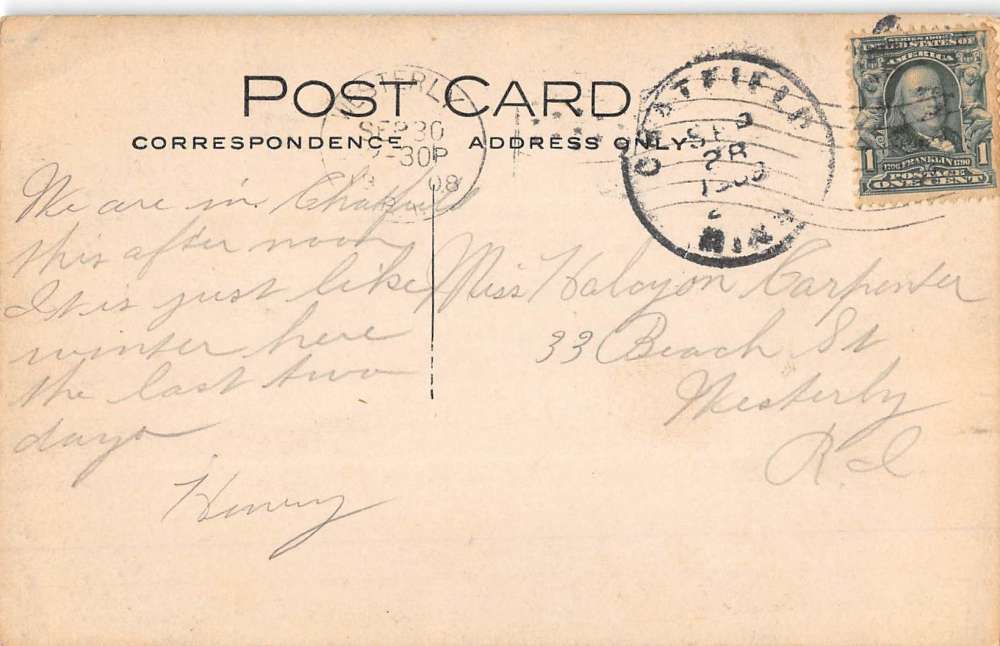 POST CARD
CORRESPONDENCE
ADDRESS ONLY
WESTERLY
SEP 30
-30P
08
R.I.
CHATFIELD
SEP
28
MINN
SERIES 1902
UNITED STATES OF
AMERICA
1
1706 FRANKLIN 1790
1
POSTAGE
ONE CENT
We are in Chatfield
this after noon
It is just like
winter here
the last two
days
Henry
Miss Halcyon Carpenter
33 Beach St
Westerly
R I